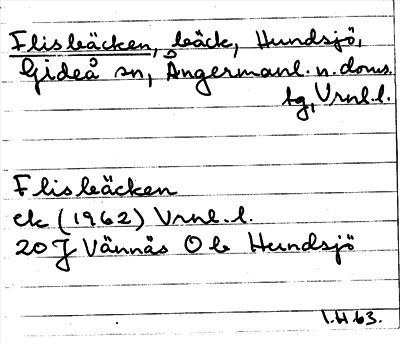 Flisbäcken, bäck, Hundsjö,
Gideå sn, Ångermanl. n. doms.
tg, Vrnl. l.
Flisbäcken
ek (1962) Vrnl. l.
20 J Vännäs O b Hundsjö
I.H. 63.